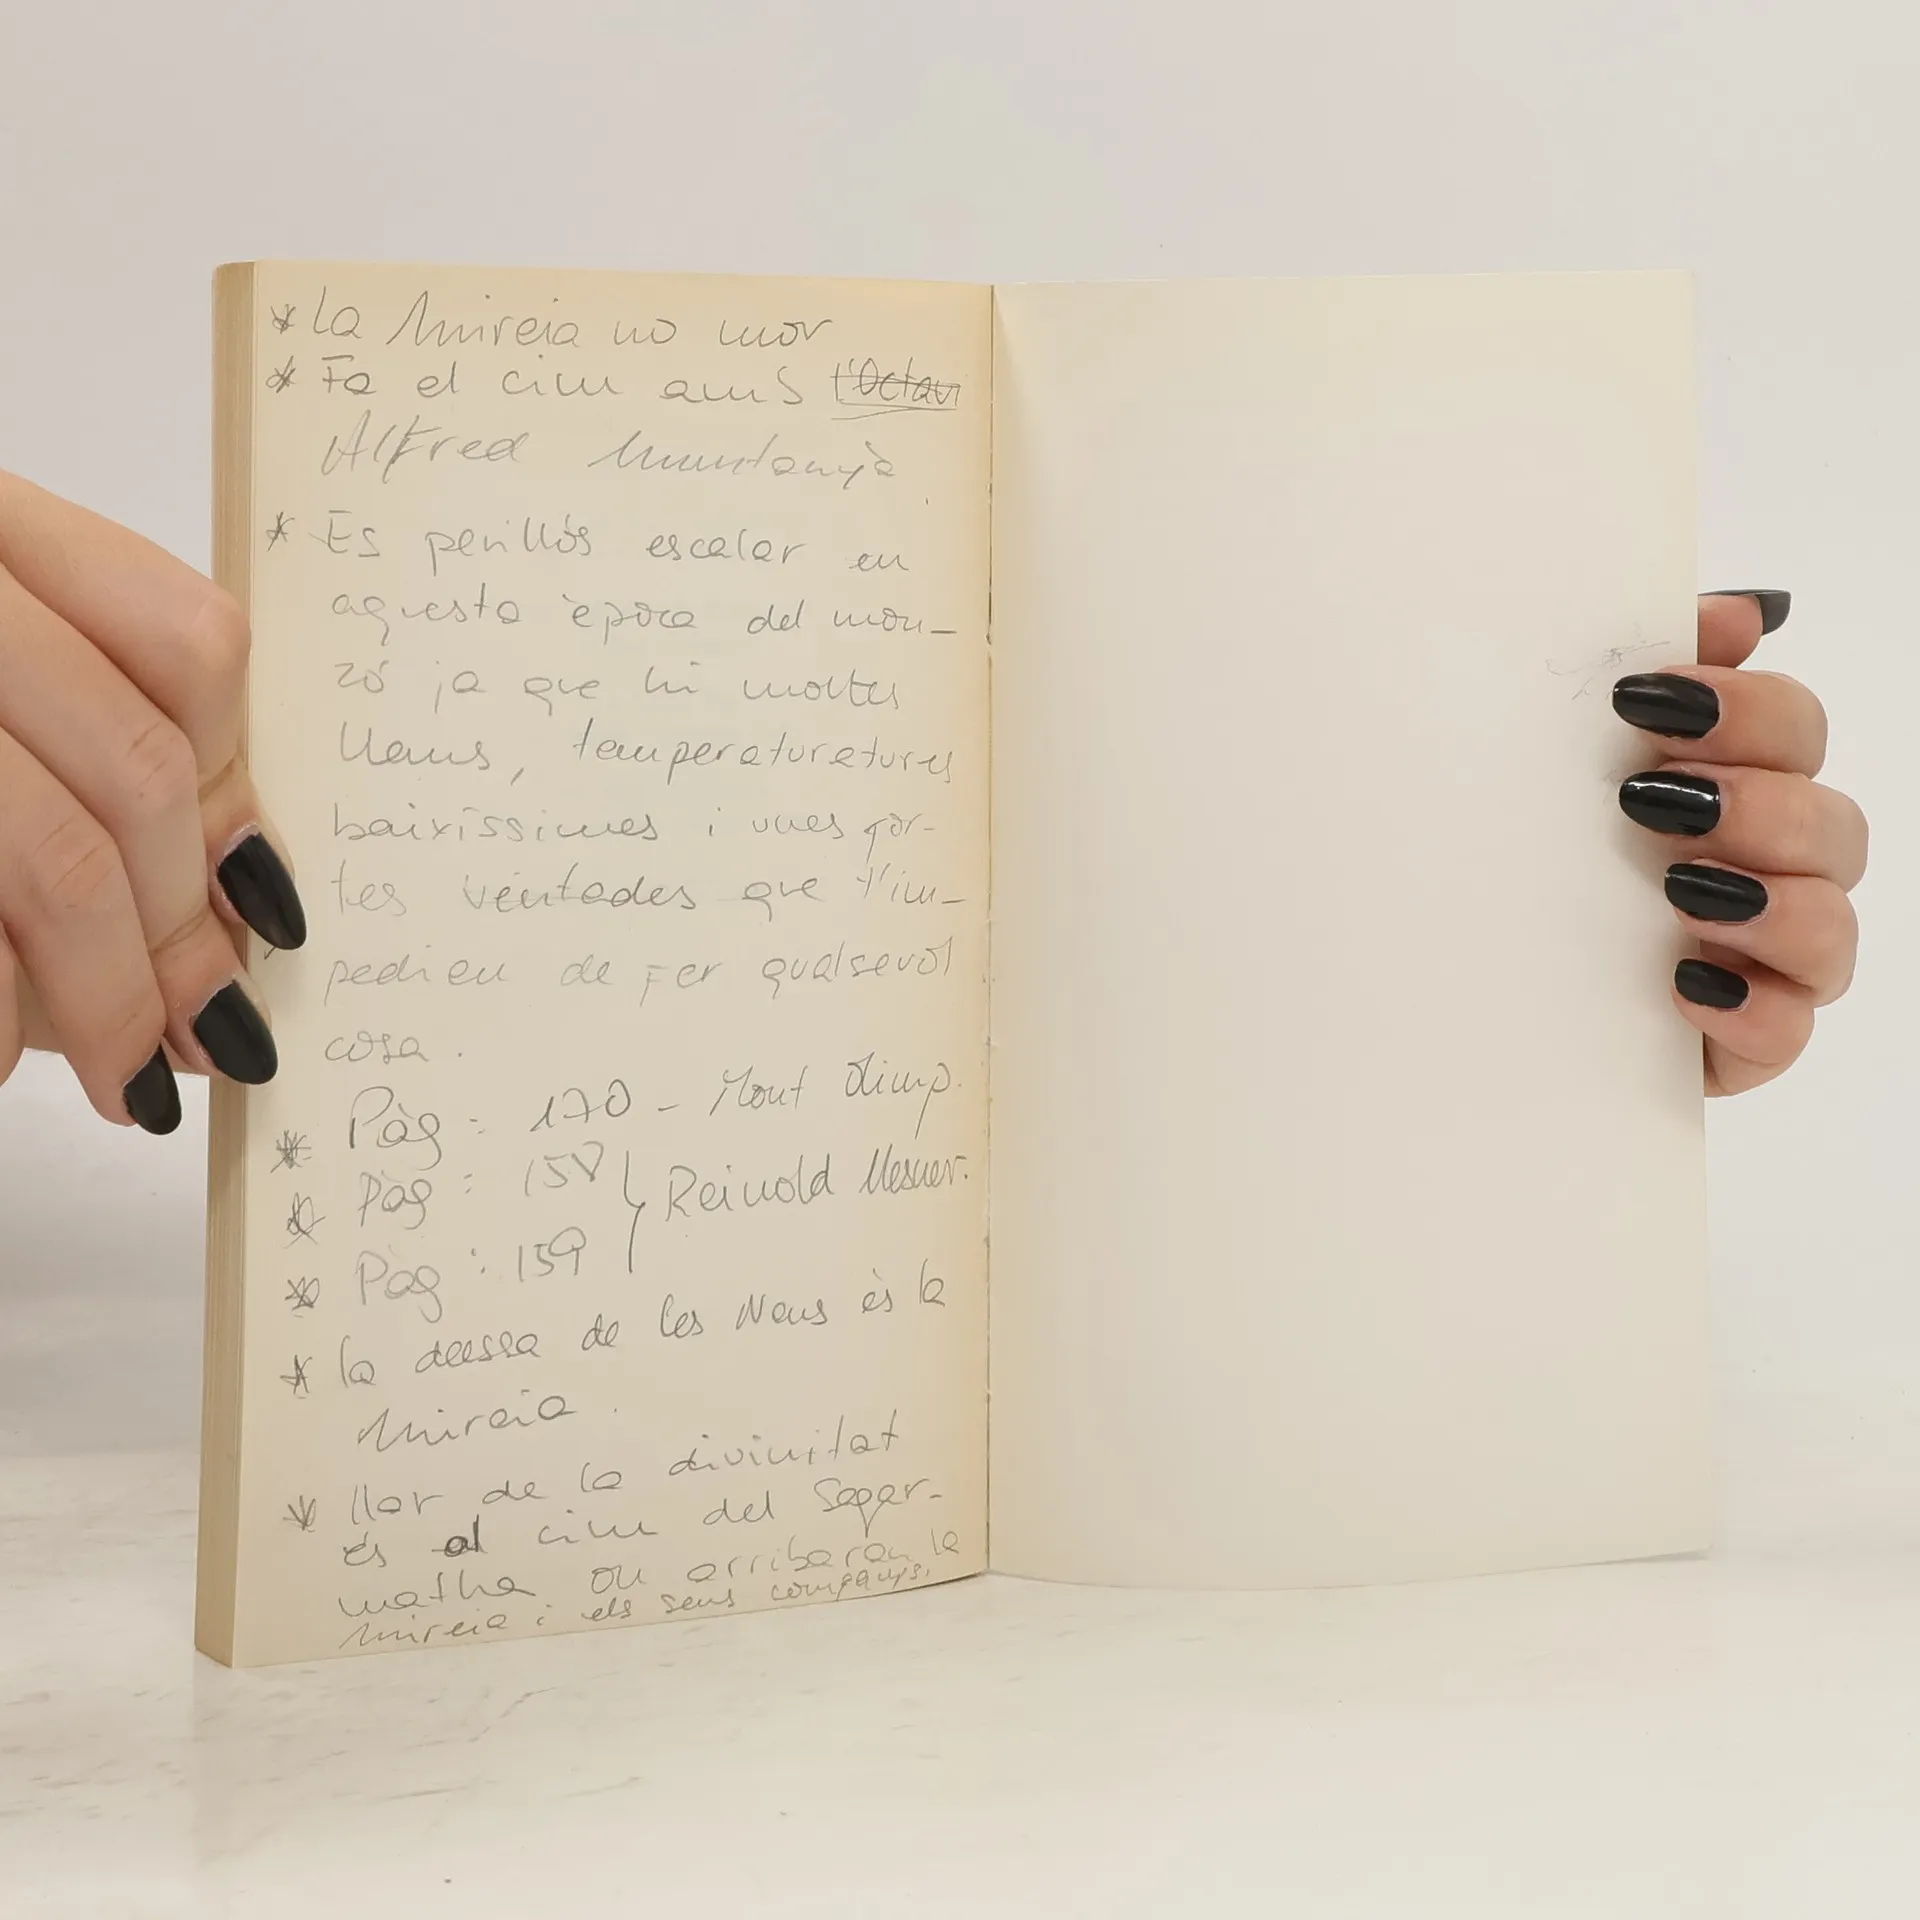 * La Mireia no mor
* Fa el cim amb l'Octavi
Alfred Muntanyà
* Es perillós escalar en
aquesta època del mon-
zó ja que hi moltes
llaus, temperaturatures
baixíssimes i unes for-
tes ventades que t'im-
pedieu de fer qualsevol
cosa.
* Pàg: 170 - Mont Olimp.
* Pàg: 158 } Reinold Mesner.
* Pàg: 159
* la deessa de les Neus és la
Mireia.
* llar de la divinitat
és al cim del Sagar-
matha on arribaran la
Mireia i els seus companys.